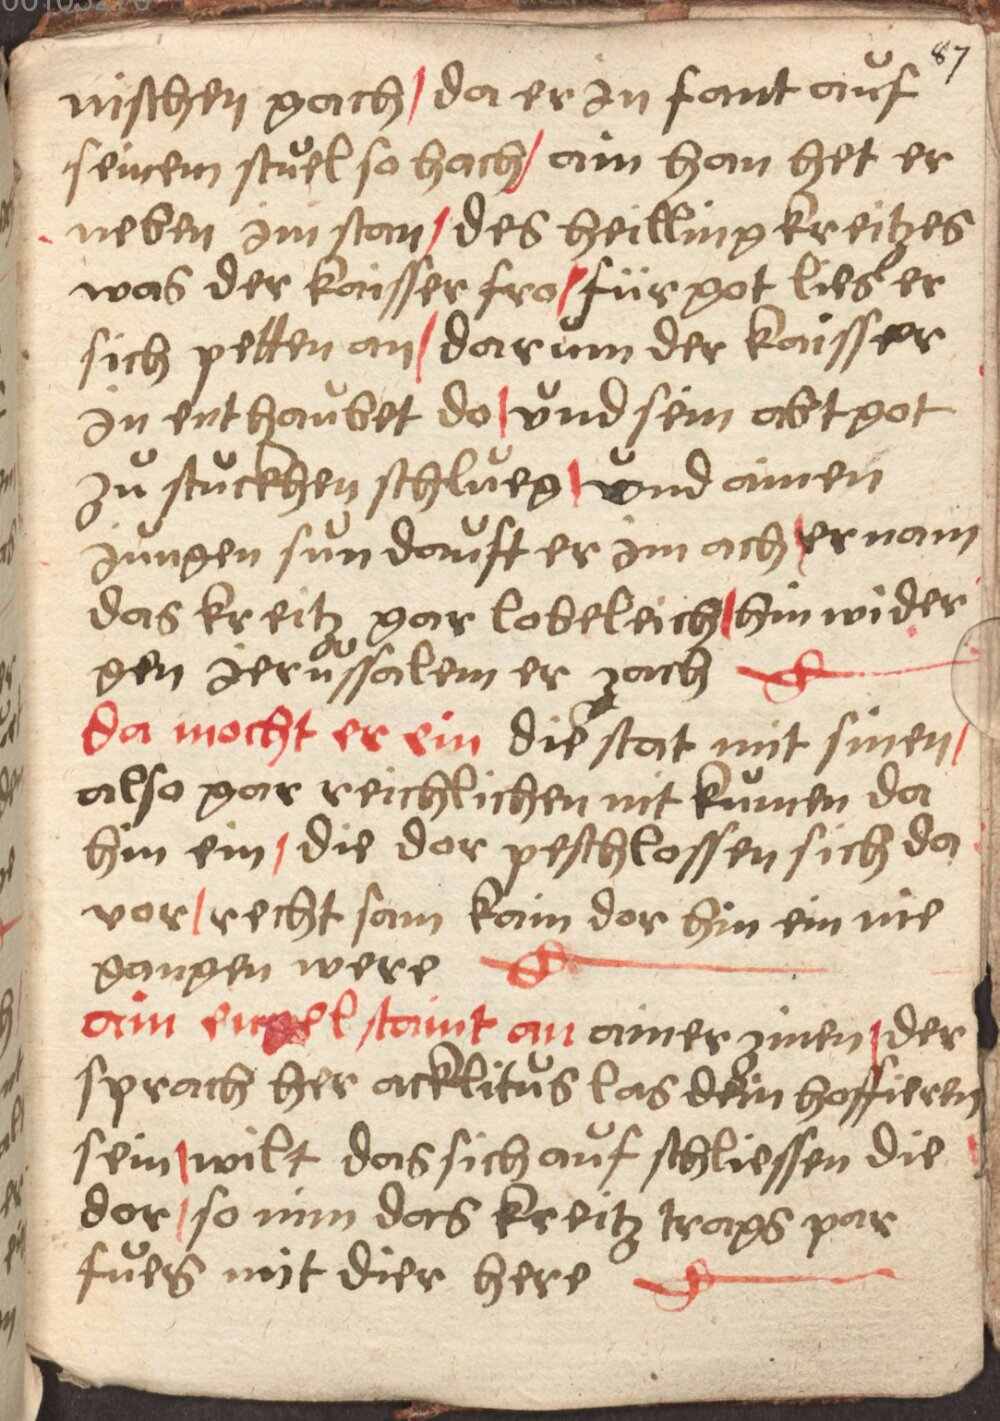 00103270
87
nischen gach / da er in fant auf
seinem stuel so hach / ain han het er
neben im stan / des heilling kreitzes
was der kaisser fro / für got lies er
sich petten an / darum der kaisser
in enthaubet do / und sein abtgot
zu stuckhen schlueg / und ainen
jungen sun dauft er im ach / er nam
das kreitz gar lobeleich / hin wider
gen jerussalem er zach
da mocht er ein die stat mit sinen /
also gar reichlichen nit kumen da
hin ein / die dor peschlossen sich da
vor / recht sam kain dor hin ein nie
gangen were
ain engel staint an ainer zinen / der
sprach her acklitus las dein hoffieren
sein / wilt das sich auf schliessen die
dor / so nim das kreitz trags par
fues mit dier here